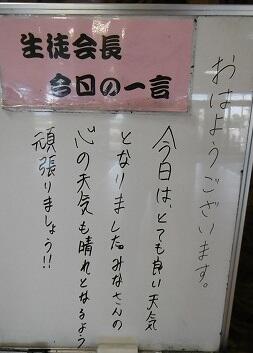 生徒会長
今日の一言
おはようございます。
今日は、とても良い天気
となりましたみなさんの
心の天気も晴れとなるよう
頑張りましょう!!